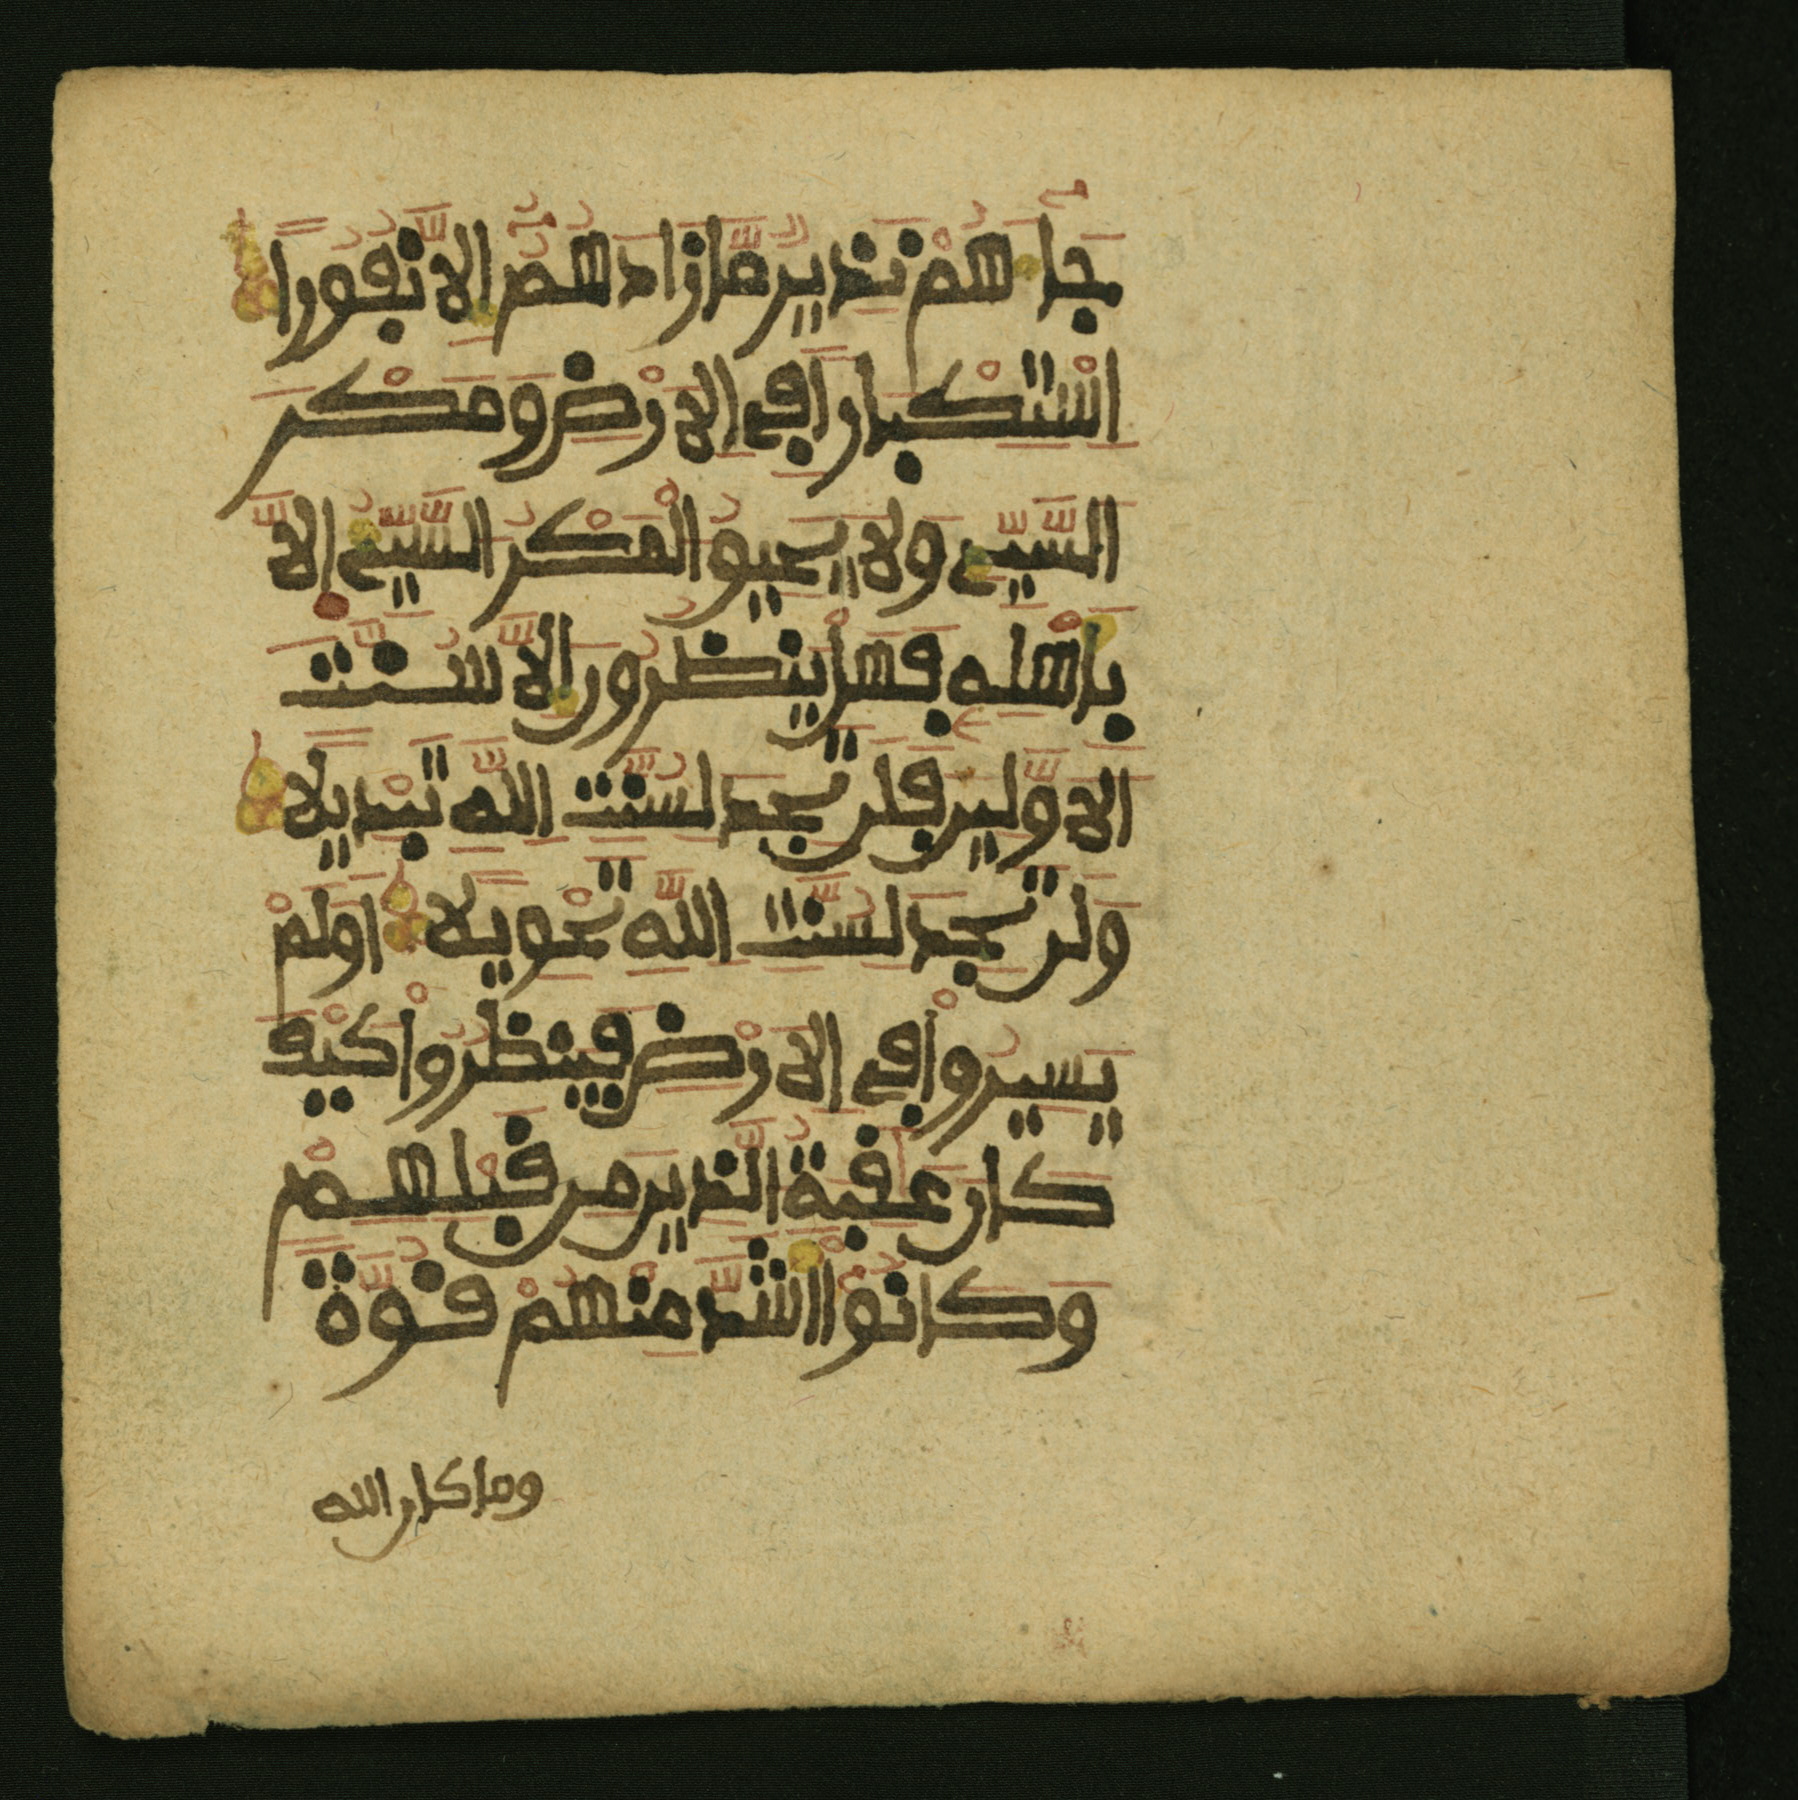 جَاءَهُمْ نَذِيرٌ مَّا زَادَهُمُ إِلَّا نُفُورًا
اسْتِكْبَارًا فِي الَارْضِ وَمَكْرَ
السَّيِّئِ وَلَا يَحِيقُ الْمَكْرُ السَّيِّئُ إِلَّا
بِأَهْلِهِ فَهَلْ يَنظُرُونَ إِلَّا سُنَّتَ
الَاوَّلِينَ فَلَن تَجِدَ لِسُنَّتِ اللَّهِ تَبْدِيلًا
وَلَن تَجِدَ لِسُنَّتِ اللَّهِ تَحْوِيلًا اَوَلَمْ
يَسِيرُواْ فِي الَارْضِ فَيَنظُرُواْ كَيْفَ
كَانَ عَٰقِبَةُ الَّذِينَ مِن قَبْلِهِمْ
وَكَانُواْ أَشَدَّ مِنْهُمْ قُوَّةً
وما كان الله